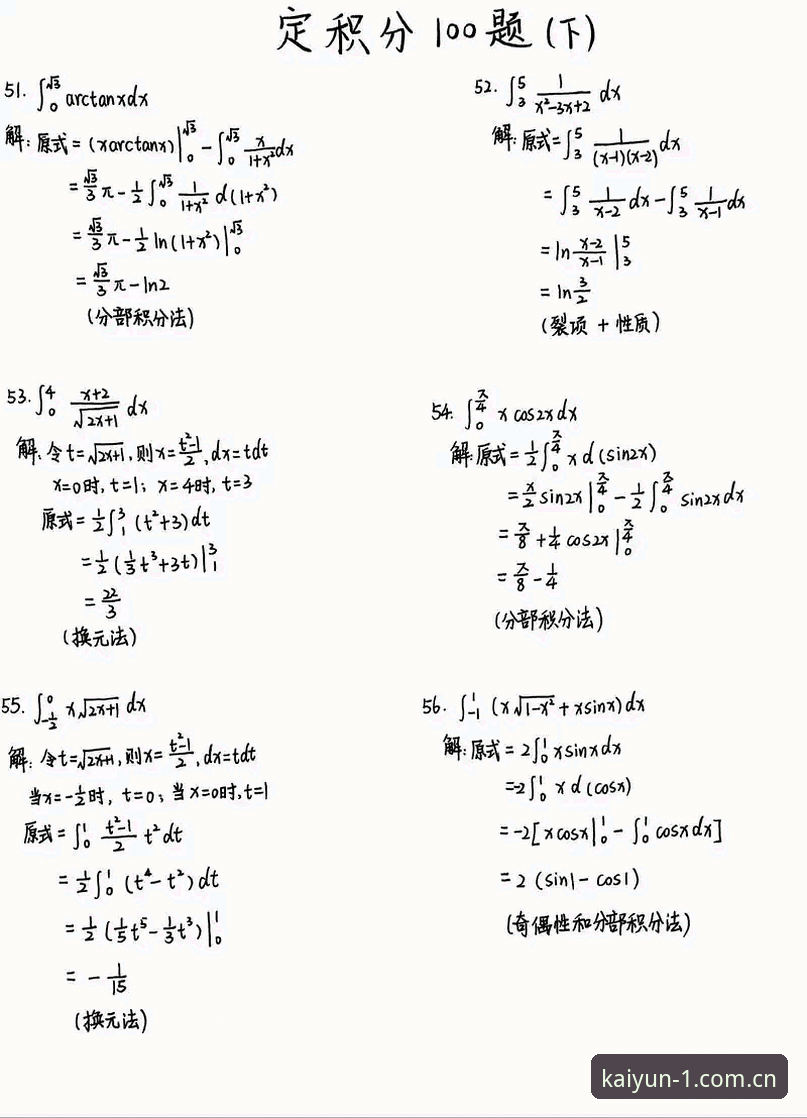 定积分100题(下)
51. ∫₀^√3 arctanxdx
解: 原式 = (xarctanx)|₀^√3 - ∫₀^√3 x/(1+x²) dx
= √3/3 π - 1/2 ∫₀^√3 1/(1+x²) d(1+x²)
= √3/3 π - 1/2 ln(1+x²)|₀^√3
= √3/3 π - ln2
(分部积分法)
52. ∫₃⁵ 1/(x²-3x+2) dx
解: 原式 = ∫₃⁵ 1/((x-1)(x-2)) dx
= ∫₃⁵ 1/(x-2) dx - ∫₃⁵ 1/(x-1) dx
= ln (x-2)/(x-1) |₃⁵
= ln 3/2
(裂项 + 性质)
53. ∫₀⁴ (x+2)/√(2x+1) dx
解: 令t=√(2x+1), 则x=(t²-1)/2, dx=tdt
x=0时, t=1; x=4时, t=3
原式 = 1/2 ∫₁³ (t²+3)dt
= 1/2 (1/3 t³+3t)|₁³
= 22/3
(换元法)
54. ∫₀^(π/4) x cos2xdx
解: 原式 = 1/2 ∫₀^(π/4) x d(sin2x)
= x/2 sin2x |₀^(π/4) - 1/2 ∫₀^(π/4) sin2xdx
= π/8 + 1/4 cos2x |₀^(π/4)
= π/8 - 1/4
(分部积分法)
55. ∫₋₁/₂⁰ x√(2x+1) dx
解: 令t=√(2x+1), 则x=(t²-1)/2, dx=tdt
当x=-1/2时, t=0; 当x=0时, t=1
原式 = ∫₀¹ (t²-1)/2 t²dt
= 1/2 ∫₀¹ (t⁴-t²)dt
= 1/2 (1/5 t⁵ - 1/3 t³)|₀¹
= - 1/15
(换元法)
56. ∫₋₁¹ (x√(1-x²) + xsinx)dx
解: 原式 = 2∫₀¹ xsinxdx
=-2∫₀¹ x d(cosx)
=-2[xcosx|₀¹ - ∫₀¹ cosxdx]
= 2 (sin1 - cos1)
(奇偶性和分部积分法)
kaiyun-1.com.cn